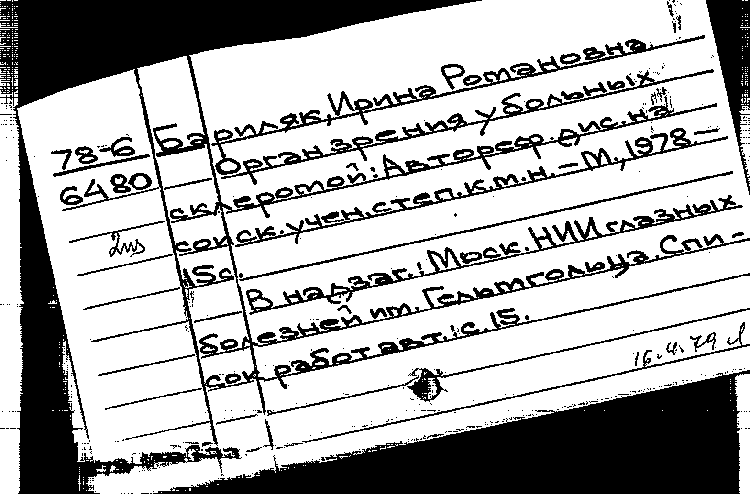 Бариляк, Ирина Романовна
78-6
6480
Орган зрения у больных
склеромой: Автореф. дис. на
соиск. учен. степ. к.м.н. – М., 1978. –
15с.
В надзаг.: Моск. НИИ глазных
болезней им. Гельмгольца. Спи-
сок работ авт.: с. 15.
16.4.79